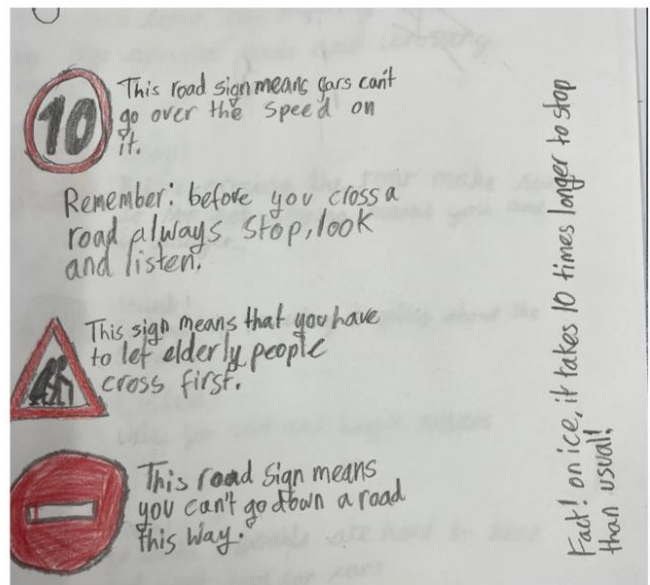 10
This road sign means cars can't
go over the speed on
it.
Remember: before you cross a
road always stop, look
and listen.
This sign means that you have
to let elderly people
cross first.
This road sign means
you can't go down a road
this way.
Fact! on ice, it takes 10 times longer to stop
than usual!